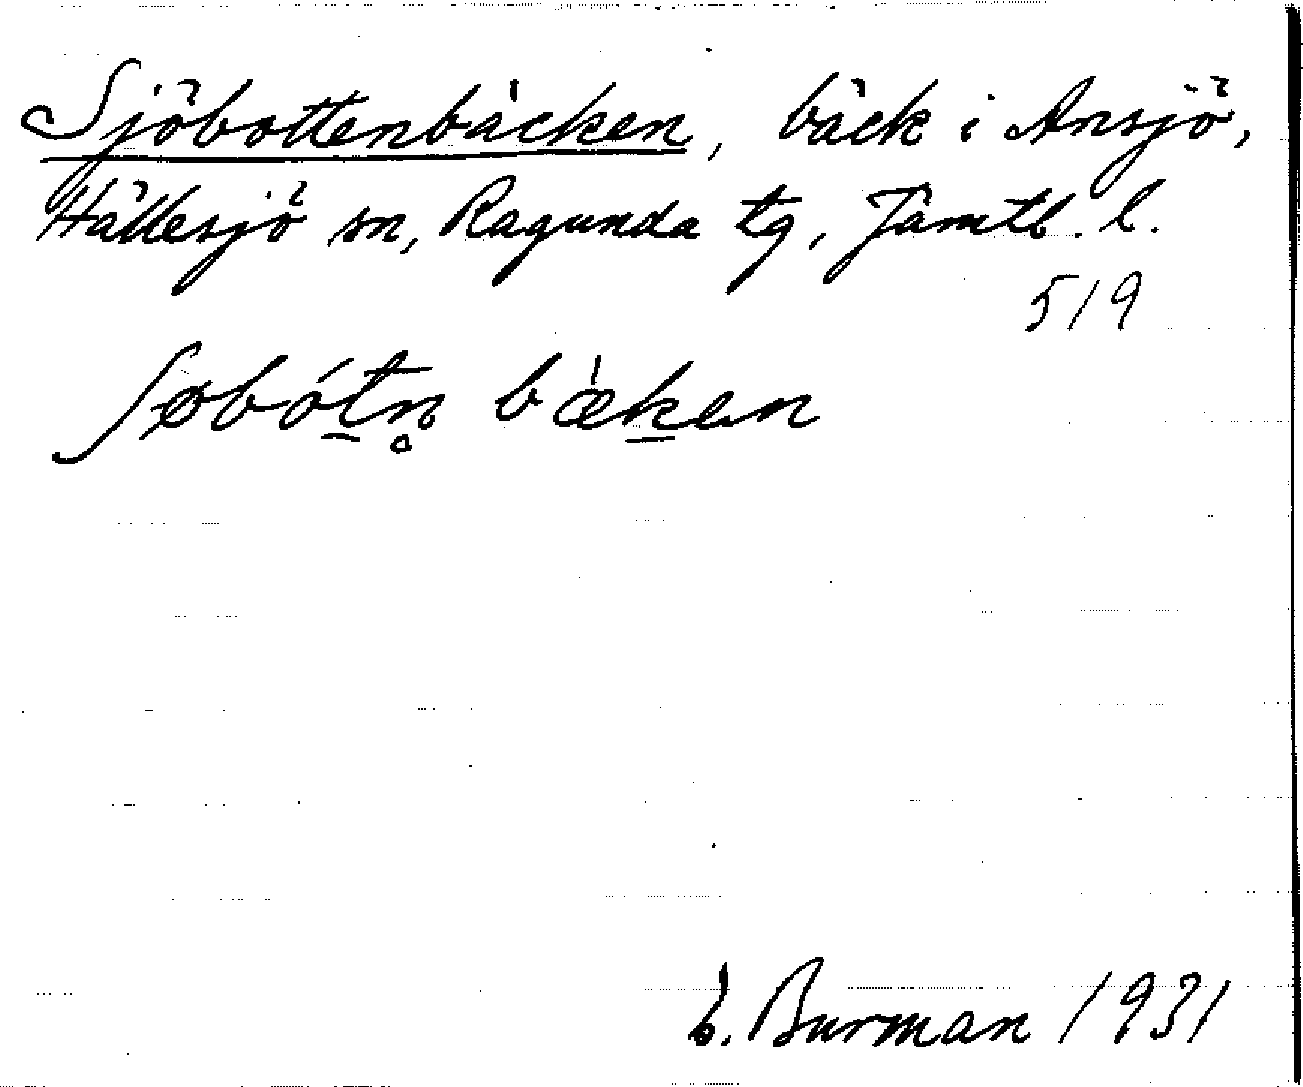 Sjöbottenbäcken, bäck i Ansjö,
Hällesjö sn, Ragunda tg, Jämtl. l.
519
ʃøbót̲n̥ bæ̀k̲en
Burman 1931